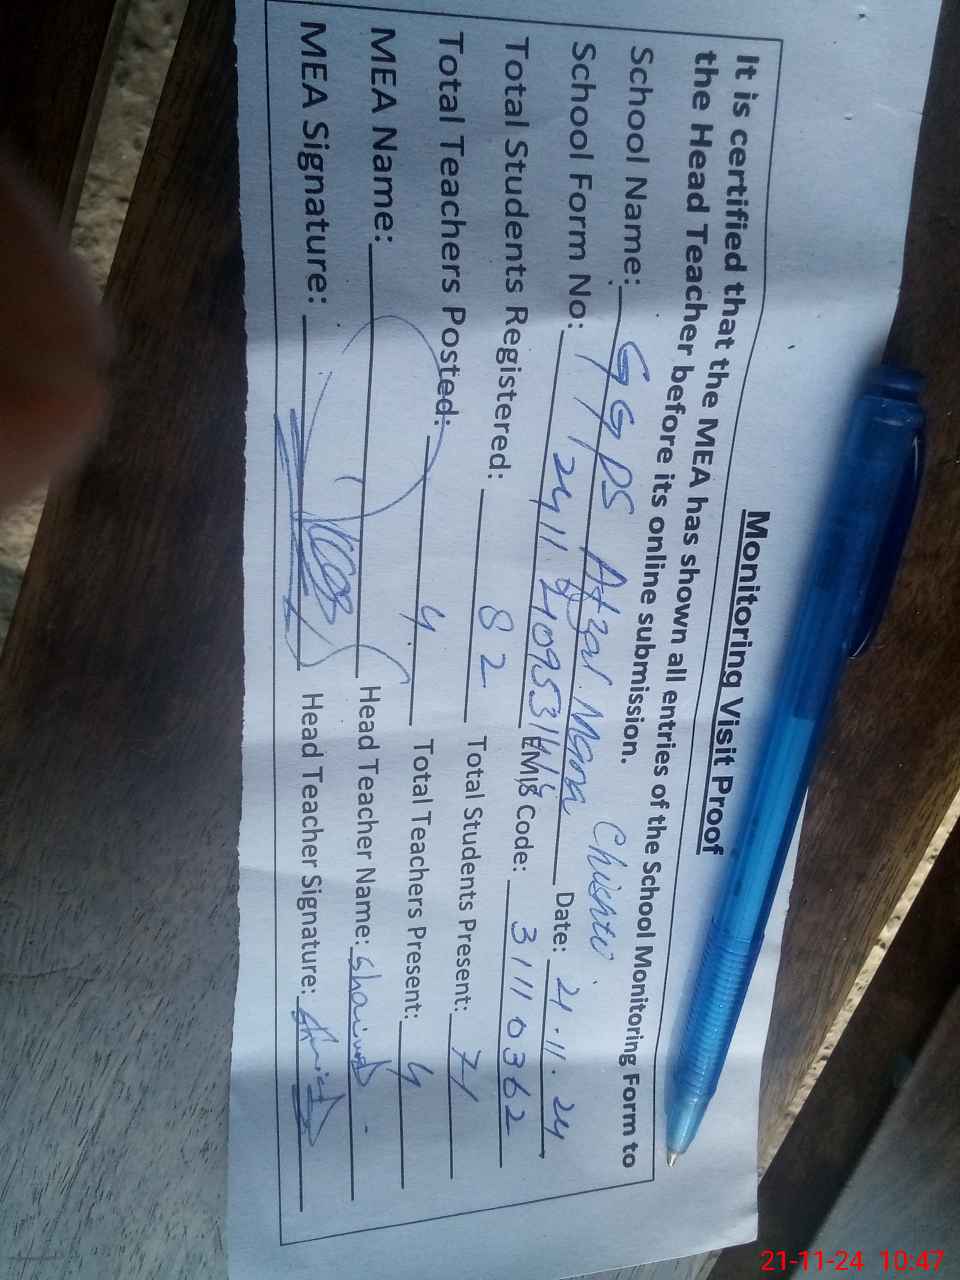 Monitoring Visit Proof
It is certified that the MEA has shown all entries of the School Monitoring Form to
the Head Teacher before its online submission.
School Name: GGPS Afzal Mana Chishti Date: 21.11.24
School Form No: EMIS Code: 31110362
Total Students Registered: 82 Total Students Present: 71
Total Teachers Posted: 4 Total Teachers Present: 4
MEA Name: Head Teacher Name:
MEA Signature: Head Teacher Signature:
21-11-24 10:47